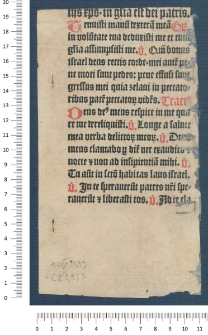 ihs eps· in glia est dei patris.
Tenuisti manū dexterā meā Et
in volūtate tua deduxisti me et cum
glia assumpsisti me. V. Quā bonus
israel deus rectis corde· mei autē pe
ne moti sunt pedes: pene effusi sunt
gressus mei quia zelaui in peccato
ribus pacē peccatorū vidēs. Tract
Deus de' meus respice in me qua
re me dereliquisti. V. Longe a salute
mea verba delictorū meorū. V. Deus
meus clamabo p diē nec exaudies
nocte et non ad insipientiā mihi. V.
Tu autē in scō habitas laus israel.
V. In te sperauerūt patres nr̄i spe
rauerūt et liberasti eos. V. Ad te cla